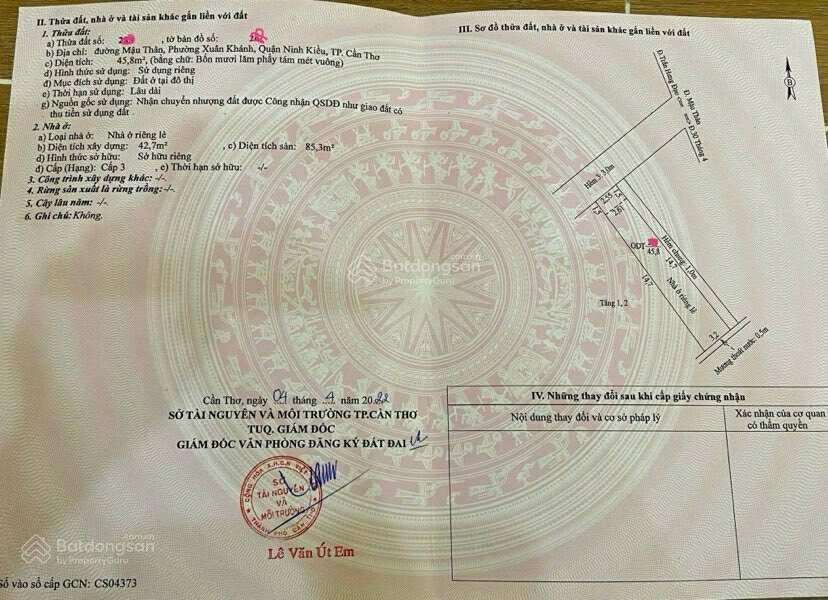 II. Thửa đất, nhà ở và tài sản khác gắn liền với đất
1. Thửa đất:
a) Thửa đất số: , tờ bản đồ số:
b) Địa chỉ: đường Mậu Thân, Phường Xuân Khánh, Quận Ninh Kiều, TP. Cần Thơ
c) Diện tích: 45,8m², (bằng chữ: Bốn mươi lăm phẩy tám mét vuông)
d) Hình thức sử dụng: Sử dụng riêng
đ) Mục đích sử dụng: Đất ở tại đô thị
e) Thời hạn sử dụng: Lâu dài
g) Nguồn gốc sử dụng: Nhận chuyển nhượng đất được Công nhận QSDĐ như giao đất có
thu tiền sử dụng đất
2. Nhà ở:
a) Loại nhà ở: Nhà ở riêng lẻ
b) Diện tích xây dựng: 42,7m² , c) Diện tích sàn: 85,3m²
d) Hình thức sở hữu: Sở hữu riêng
đ) Cấp (Hạng): Cấp 3 , e) Thời hạn sở hữu: -/-
3. Công trình xây dựng khác: -/-.
4. Rừng sản xuất là rừng trồng:-/-.
5. Cây lâu năm: -/-
6. Ghi chú: Không.
Cần Thơ, ngày 04 tháng 4 năm 2022
SỞ TÀI NGUYÊN VÀ MÔI TRƯỜNG TP.CẦN THƠ
TUQ. GIÁM ĐỐC
GIÁM ĐỐC VĂN PHÒNG ĐĂNG KÝ ĐẤT ĐAI
CỘNG HÒA X.H.C.N VIỆT
SỞ
TÀI NGUYÊN
VÀ
MÔI TRƯỜNG
THÀNH PHỐ CẦN THƠ
Lê Văn Út Em
Số vào sổ cấp GCN: CS04373
III. Sơ đồ thửa đất, nhà ở và tài sản khác gắn liền với đất
B
Đ.Trần Hưng Đạo
Đ. Mậu Thân
Đ.30 Tháng 4
Hẻm 3, 3.0m
2.55
2.61
ODT
45,8
14,7
Hẻm chung: 1,0m
14,7
Nhà ở riêng lẻ
Tầng 1, 2
3,2
Mương thoát nước: 0,5m
IV. Những thay đổi sau khi cấp giấy chứng nhận
Nội dung thay đổi và cơ sở pháp lý
Xác nhận của cơ quan
có thẩm quyền
Batdongsan
.com.vn
by PropertyGuru
Batdongsan
.com.vn
by PropertyGuru